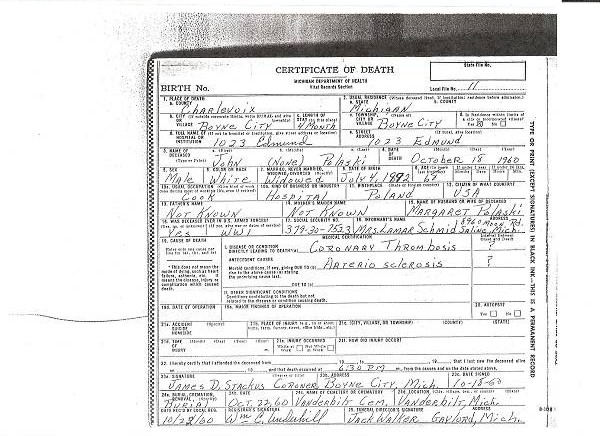 State File No.
CERTIFICATE OF DEATH
MICHIGAN DEPARTMENT OF HEALTH
Vital Records Section
BIRTH No.
Local File No. 11
1. PLACE OF DEATH
a. COUNTY
Charlevoix
2. USUAL RESIDENCE (Where deceased lived. If institution: residence before admission).
a. STATE b. COUNTY
Michigan
b. CITY
OR
VILLAGE Boyne City
c. LENGTH OF
4 Month
c. TOWNSHIP,
CITY OR
VILLAGE Boyne City
d. FULL NAME OF
HOSPITAL OR
INSTITUTION 1023 Edmund
d. STREET
ADDRESS 1023 Edmund
3. NAME OF
DECEASED
(Type or Print) John (None) Polaski
4. DATE
OF
DEATH October 18 1960
5. SEX
Male
6. COLOR OR RACE
White
7. MARRIED, NEVER MARRIED,
WIDOWED, DIVORCED
Widowed
8. DATE OF BIRTH
July 4, 1892
9. AGE
10a. USUAL OCCUPATION
Cook
10b. KIND OF BUSINESS OR INDUSTRY
Hospital
11. BIRTHPLACE
Poland
12. CITIZEN OF WHAT COUNTRY?
USA
13. FATHER'S NAME
Not Known
14. MOTHER'S MAIDEN NAME
Not Known
15. NAME OF HUSBAND OR WIFE OF DECEASED
Margaret Polaski
16. WAS DECEASED EVER IN U.S. ARMED FORCES?
Yes WW I
17. SOCIAL SECURITY NO.
379-30-7523
18. INFORMANT'S NAME
Mrs. Lamar Schmid
ADDRESS
Saline, Mich.
19. CAUSE OF DEATH
MEDICAL CERTIFICATION
I. DISEASE OR CONDITION
DIRECTLY LEADING TO DEATH* (a) Coronary Thrombosis ?
ANTECEDENT CAUSES
Arterio sclerosis ?
*This does not mean the
mode of dying, such as heart
failure, asthenia, etc. It
means the disease, injury or
complication which caused
death.
DUE TO (c)
II. OTHER SIGNIFICANT CONDITIONS
Conditions contributing to the death but not
related to the disease or condition causing death.
19a. DATE OF OPERATION
19b. MAJOR FINDINGS OF OPERATION
20. AUTOPSY
Yes No
21a. ACCIDENT
SUICIDE
HOMICIDE
21b. PLACE OF INJURY
21c. (CITY, VILLAGE, OR TOWNSHIP) (COUNTY) (STATE)
21d. TIME
OF
INJURY
21e. INJURY OCCURRED
21f. HOW DID INJURY OCCUR?
22. I hereby certify that I attended the deceased from 19 to 19 that I last saw the deceased alive
on 19 and that death occurred at 6:30 P.M. m., from the causes and on the date stated above.
23a. SIGNATURE
James D. Stackus Coroner
23b. ADDRESS
Boyne City, Mich.
23c. DATE SIGNED
10-18-60
24a. BURIAL, CREMATION,
REMOVAL
Burial
24b. DATE
Oct. 22, 60
24c. NAME OF CEMETERY OR CREMATORY
Vanderbilt Cem.
24d. LOCATION
Vanderbilt, Mich.
DATE REC'D BY LOCAL REG.
10/22/60
REGISTRAR'S SIGNATURE
Wm C. Underhill
25. FUNERAL DIRECTOR'S SIGNATURE ADDRESS
Jack Walker Gaylord, Mich.
TYPE OR PRINT (EXCEPT SIGNATURES) IN BLACK INK—THIS IS A PERMANENT RECORD